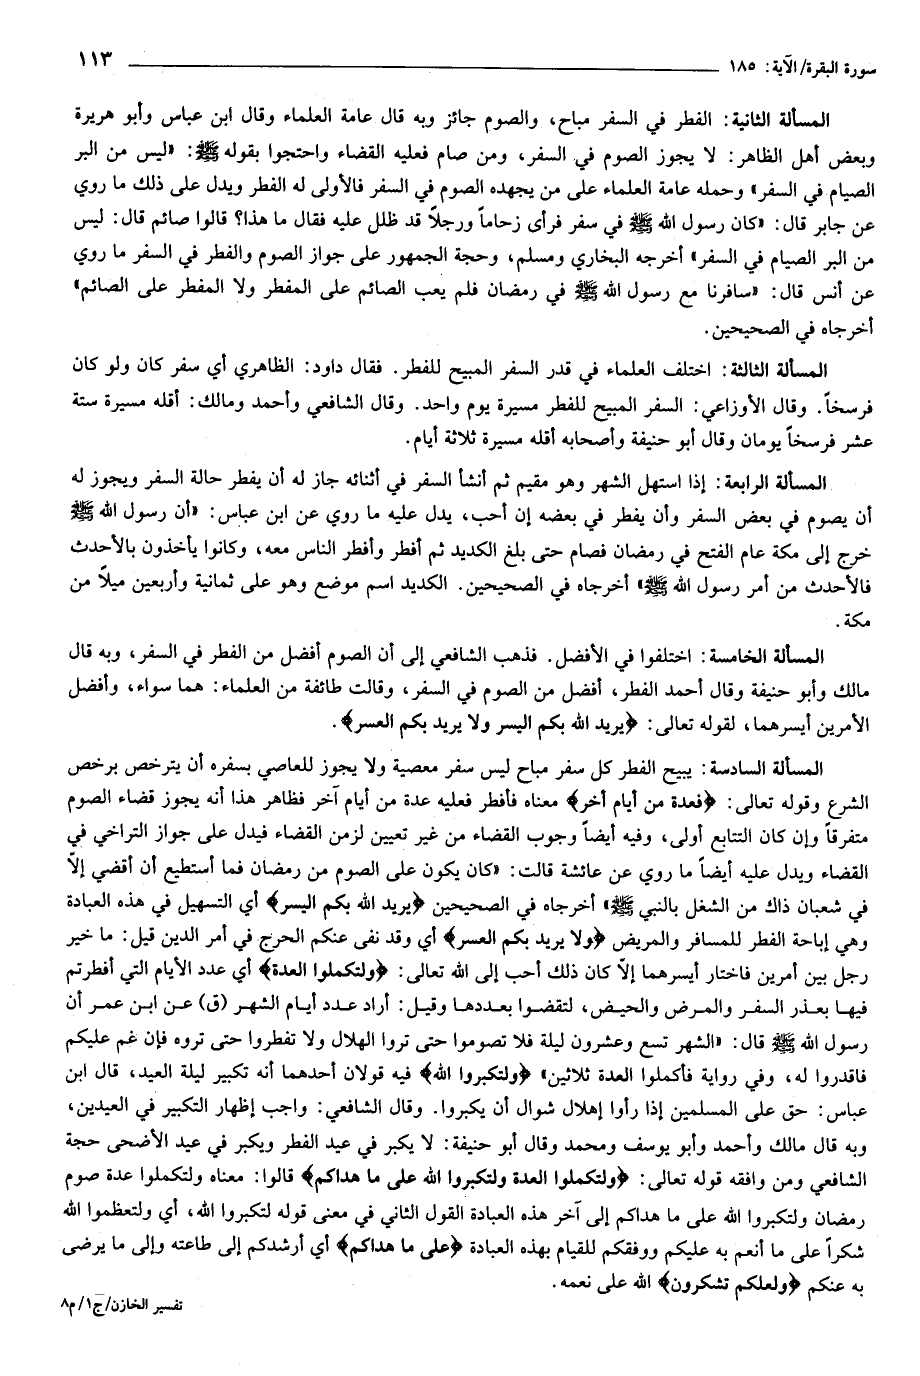 سورة البقرة/ الآية: ١٨٥ ١١٣
المسألة الثانية: الفطر في السفر مباح، والصوم جائز وبه قال عامة العلماء وقال ابن عباس وأبو هريرة
وبعض أهل الظاهر: لا يجوز الصوم في السفر، ومن صام فعليه القضاء واحتجوا بقوله ﷺ: «ليس من البر
الصيام في السفر» وحمله عامة العلماء على من يجهده الصوم في السفر فالأولى له الفطر ويدل على ذلك ما روي
عن جابر قال: «كان رسول الله ﷺ في سفر فرأى زحاماً ورجلاً قد ظلل عليه فقال ما هذا؟ قالوا صائم قال: ليس
من البر الصيام في السفر» أخرجه البخاري ومسلم، وحجة الجمهور على جواز الصوم والفطر في السفر ما روي
عن أنس قال: «سافرنا مع رسول الله ﷺ في رمضان فلم يعب الصائم على المفطر ولا المفطر على الصائم»
أخرجاه في الصحيحين.
المسألة الثالثة: اختلف العلماء في قدر السفر المبيح للفطر. فقال داود: الظاهري أي سفر كان ولو كان
فرسخاً. وقال الأوزاعي: السفر المبيح للفطر مسيرة يوم واحد. وقال الشافعي وأحمد ومالك: أقله مسيرة ستة
عشر فرسخاً يومان وقال أبو حنيفة وأصحابه أقله مسيرة ثلاثة أيام.
المسألة الرابعة: إذا استهل الشهر وهو مقيم ثم أنشأ السفر في أثنائه جاز له أن يفطر حالة السفر ويجوز له
أن يصوم في بعض السفر وأن يفطر في بعضه إن أحب، يدل عليه ما روي عن ابن عباس: «أن رسول الله ﷺ
خرج إلى مكة عام الفتح في رمضان فصام حتى بلغ الكديد ثم أفطر وأفطر الناس معه، وكانوا يأخذون بالأحدث
فالأحدث من أمر رسول الله ﷺ» أخرجاه في الصحيحين. الكديد اسم موضع وهو على ثمانية وأربعين ميلاً من
مكة.
المسألة الخامسة: اختلفوا في الأفضل. فذهب الشافعي إلى أن الصوم أفضل من الفطر في السفر، وبه قال
مالك وأبو حنيفة وقال أحمد الفطر، أفضل من الصوم في السفر، وقالت طائفة من العلماء: هما سواء، وأفضل
الأمرين أيسرهما، لقوله تعالى: ﴿يريد الله بكم اليسر ولا يريد بكم العسر﴾.
المسألة السادسة: يبيح الفطر كل سفر مباح ليس سفر معصية ولا يجوز للعاصي بسفره أن يترخص برخص
الشرع وقوله تعالى: ﴿فعدة من أيام أخر﴾ معناه فأفطر فعليه عدة من أيام آخر فظاهر هذا أنه يجوز قضاء الصوم
متفرقاً وإن كان التتابع أولى، وفيه أيضاً وجوب القضاء من غير تعيين لزمن القضاء فيدل على جواز التراخي في
القضاء ويدل عليه أيضاً ما روي عن عائشة قالت: «كان يكون على الصوم من رمضان فما أستطيع أن أقضي إلاّ
في شعبان ذاك من الشغل بالنبي ﷺ» أخرجاه في الصحيحين ﴿يريد الله بكم اليسر﴾ أي التسهيل في هذه العبادة
وهي إباحة الفطر للمسافر والمريض ﴿ولا يريد بكم العسر﴾ أي وقد نفى عنكم الحرج في أمر الدين قيل: ما خير
رجل بين أمرين فاختار أيسرهما إلاّ كان ذلك أحب إلى الله تعالى: ﴿ولتكملوا العدة﴾ أي عدد الأيام التي أفطرتم
فيها بعذر السفر والمرض والحيض، لتقضوا بعددها وقيل: أراد عدد أيام الشهر (ق) عن ابن عمر أن
رسول الله ﷺ قال: «الشهر تسع وعشرون ليلة فلا تصوموا حتى تروا الهلال ولا تفطروا حتى تروه فإن غم عليكم
فاقدروا له، وفي رواية فأكملوا العدة ثلاثين» ﴿ولتكبروا الله﴾ فيه قولان أحدهما أنه تكبير ليلة العيد، قال ابن
عباس: حق على المسلمين إذا رأوا إهلال شوال أن يكبروا. وقال الشافعي: واجب إظهار التكبير في العيدين،
وبه قال مالك وأحمد وأبو يوسف ومحمد وقال أبو حنيفة: لا يكبر في عيد الفطر ويكبر في عيد الأضحى حجة
الشافعي ومن وافقه قوله تعالى: ﴿ولتكملوا العدة ولتكبروا الله على ما هداكم﴾ قالوا: معناه ولتكملوا عدة صوم
رمضان ولتكبروا الله على ما هداكم إلى آخر هذه العبادة القول الثاني في معنى قوله لتكبروا الله، أي ولتعظموا الله
شكراً على ما أنعم به عليكم ووفقكم للقيام بهذه العبادة ﴿على ما هداكم﴾ أي أرشدكم إلى طاعته وإلى ما يرضى
به عنكم ﴿ولعلكم تشكرون﴾ الله على نعمه.
تفسير الخازن/ ج١/ م٨